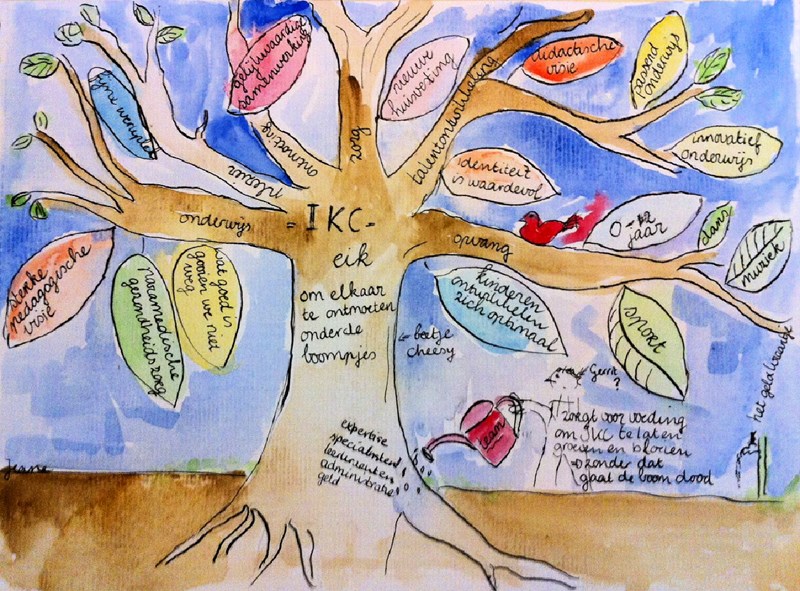 gelijkwaardige
samenwerking
nieuwe
huisvesting
didactische
visie
passend
onderwijs
fijne werkplek
innovatief
onderwijs
identiteit
is waardevol
inclusie
ontmoeting
zorg
talentontwikkeling
onderwijs
= IKC =
eik
opvang
0-12
jaar
dans
muziek
sterke
pedagogische
visie
paramedische
gezondheidszorg
wat goed is
gooien we niet
weg
om elkaar
te ontmoeten
onder de
boompjes
← beetje
cheesy
kinderen
ontwikkelen
zich optimaal
sport
Gerrit
?
zorgt voor voeding
om IKC te laten
groeien en bloeien
zonder dat
gaat de boom dood
expertise
specialisten
leerkrachten
administratie
geld